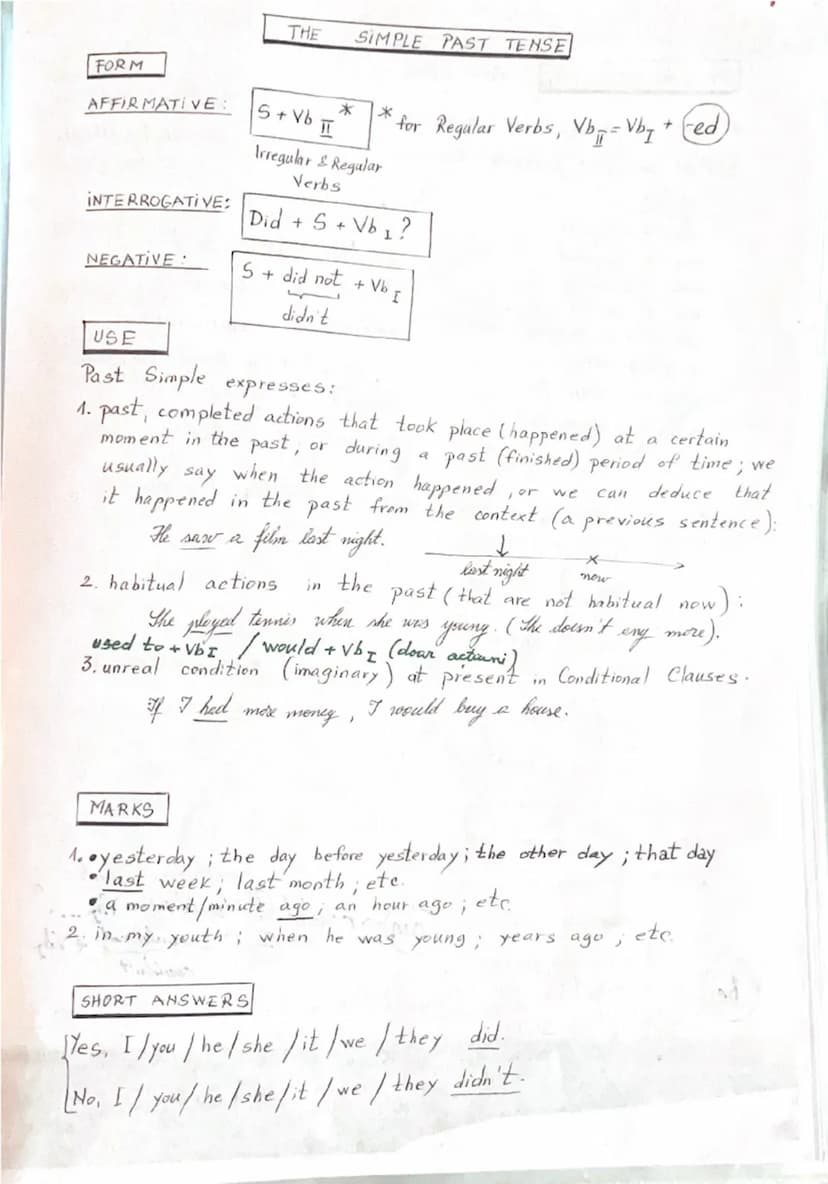 THE SIMPLE PAST TENSE
FORM
AFFIRMATIVE: S + Vb II * * for Regular Verbs, Vb II = Vb I + -ed
Irregular & Regular
Verbs
INTERROGATIVE: Did + S + Vb 1 ?
NEGATIVE: S + did not + Vb I
didn't
USE
Past Simple expresses:
1. past, completed actions that took place (happened) at a certain
moment in the past, or during a past (finished) period of time; we
usually say when the action happened, or we can deduce that
it happened in the past from the context (a previous sentence):
He saw a film last night.
last night now
2. habitual actions in the past (that are not habitual now):
She played tennis when she was young. (She doesn't any more).
used to + Vb I / would + Vb I (doar acțiuni)
3. unreal condition (imaginary) at present in Conditional Clauses.
If I had more money, I would buy a house.
MARKS
1. • yesterday; the day before yesterday; the other day; that day
• last week; last month; etc.
• a moment/minute ago; an hour ago; etc.
2. in my youth; when he was young; years ago; etc.
SHORT ANSWERS
Yes, I / you / he / she / it / we / they did.
No, I / you / he / she / it / we / they didn't.